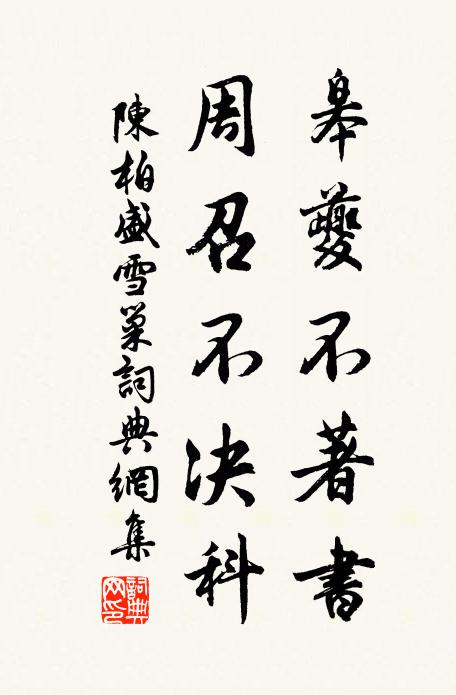 皋夔不著書
周召不决科
陳柏盛雪巢詞典網集
詞典网印